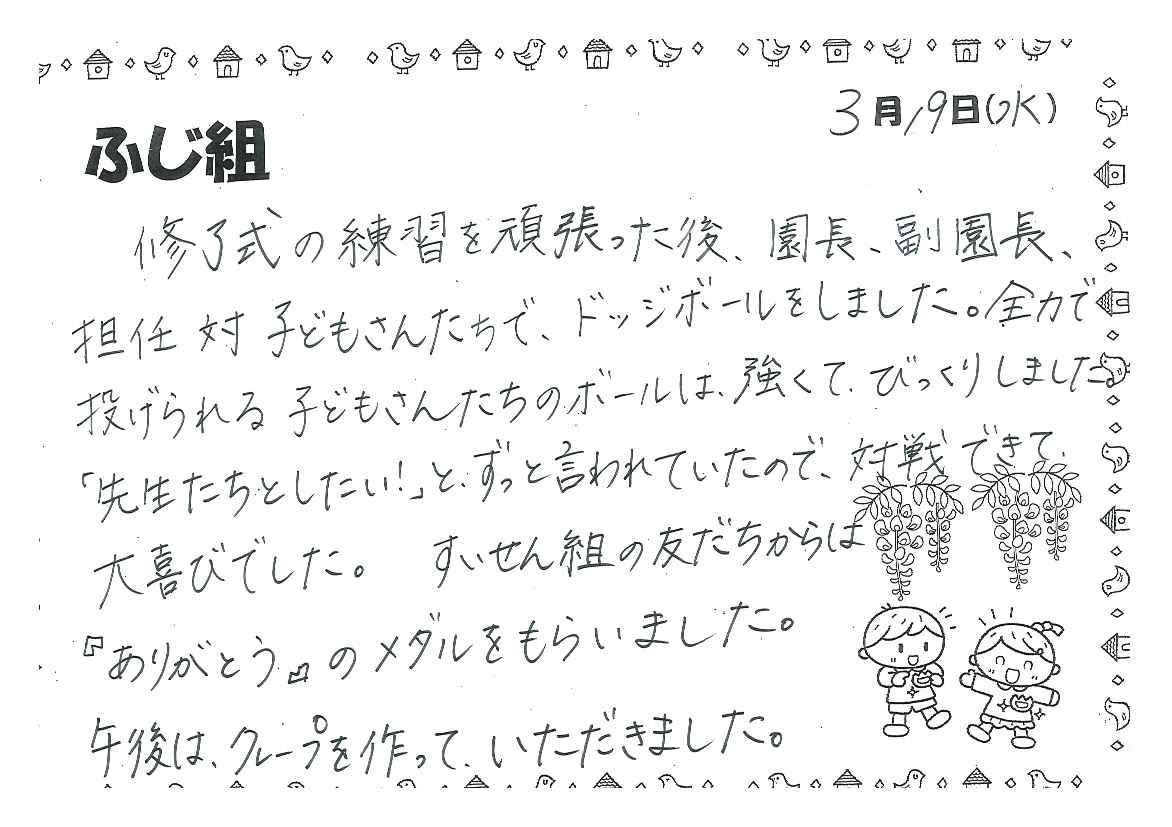 3月19日(水)
ふじ組
修了式の練習を頑張った後、園長、副園長、
担任 対 子どもさんたちで、ドッジボールをしました。全力で
投げられる 子どもさんたちのボールは、強くて、びっくりしました。
「先生たちとしたい!」と、ずっと言われていたので、対戦できて、
大喜びでした。 すいせん組の友だちからは
『ありがとう』のメダルをもらいました。
午後は、グループを作って、いただきました。